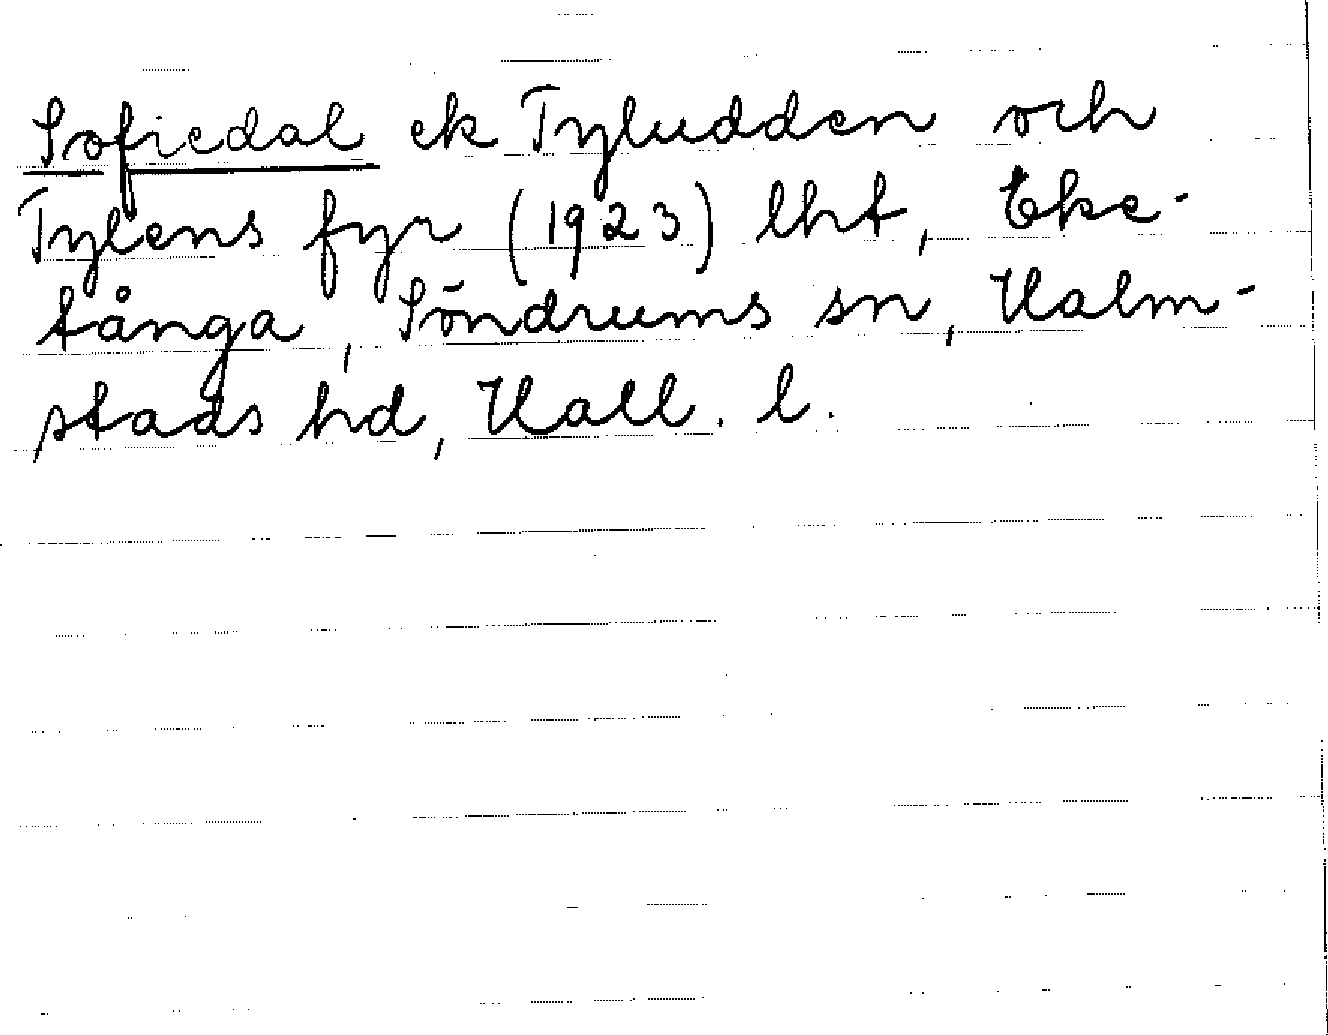 Sofiedal ek Tyludden och
Tylens fyr (1923) lht, Eke-
tånga, Söndrums sn, Halm-
stads hd, Hall. l.